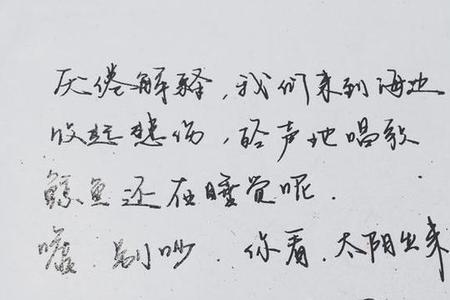 厌倦解释，我们来到海边
收起悲伤，轻声地唱歌
鲸鱼还在睡觉呢.
嘘.别吵.你看.太阳出来